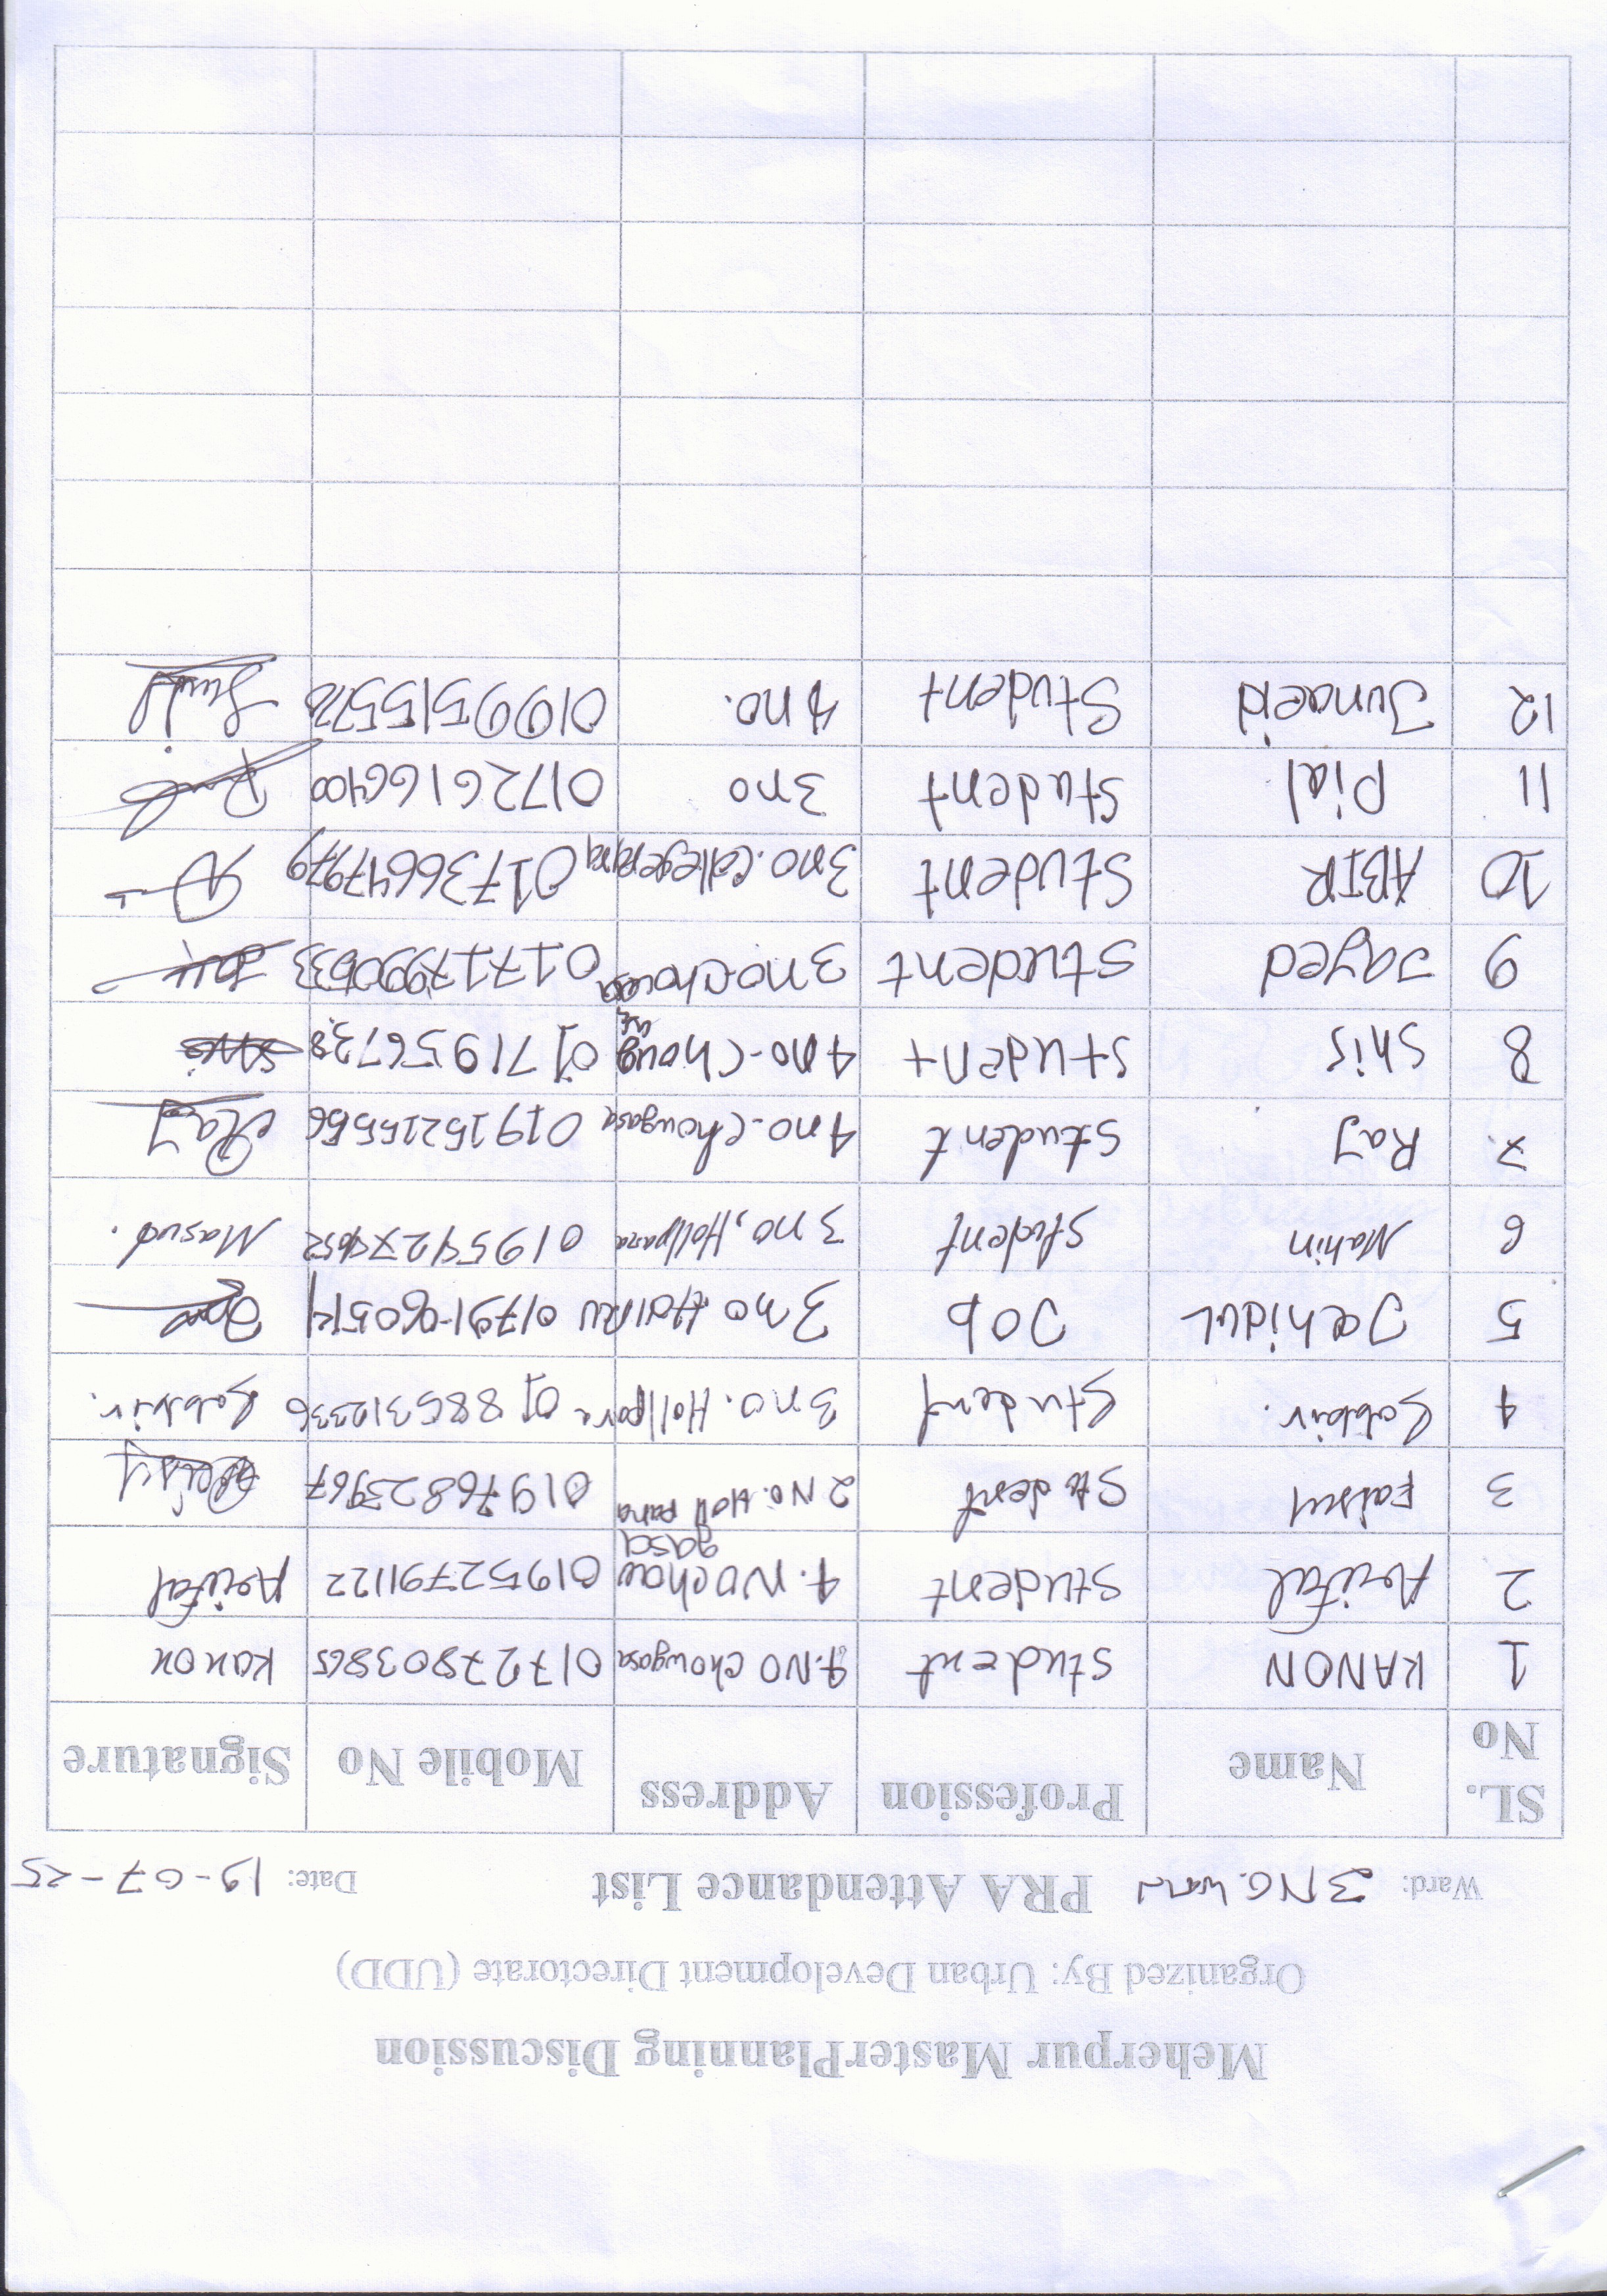 Meherpur MasterPlanning Discussion
Organized By: Urban Development Directorate (UDD)
Ward: 3 NO. ward PRA Attendance List Date: 19-07-25
SL. No Name Profession Address Mobile No Signature
1 KANON student 4.NO chowgasa 01727803865 Kanon
2 Ariful student 4. NO chow gasa 01952791122 Ariful
3 student 2 No. Holl para 01976823967
4 Sabbir. Student 3 no. Hollpara Sabbir.
5 Jahidul Job 3 no
6 Mahin student 3 no, Hollpara Masud.
7. Raj student 4 no-chowgasa 01915215556 Raj
8 Shis student 4 no-choug
9 Jayed Student 3 no
10 ABIR Student 3 no. collegepara 01736647979
11 Pial student 3 no 01726166400
12 Junaeid Student 4 no.